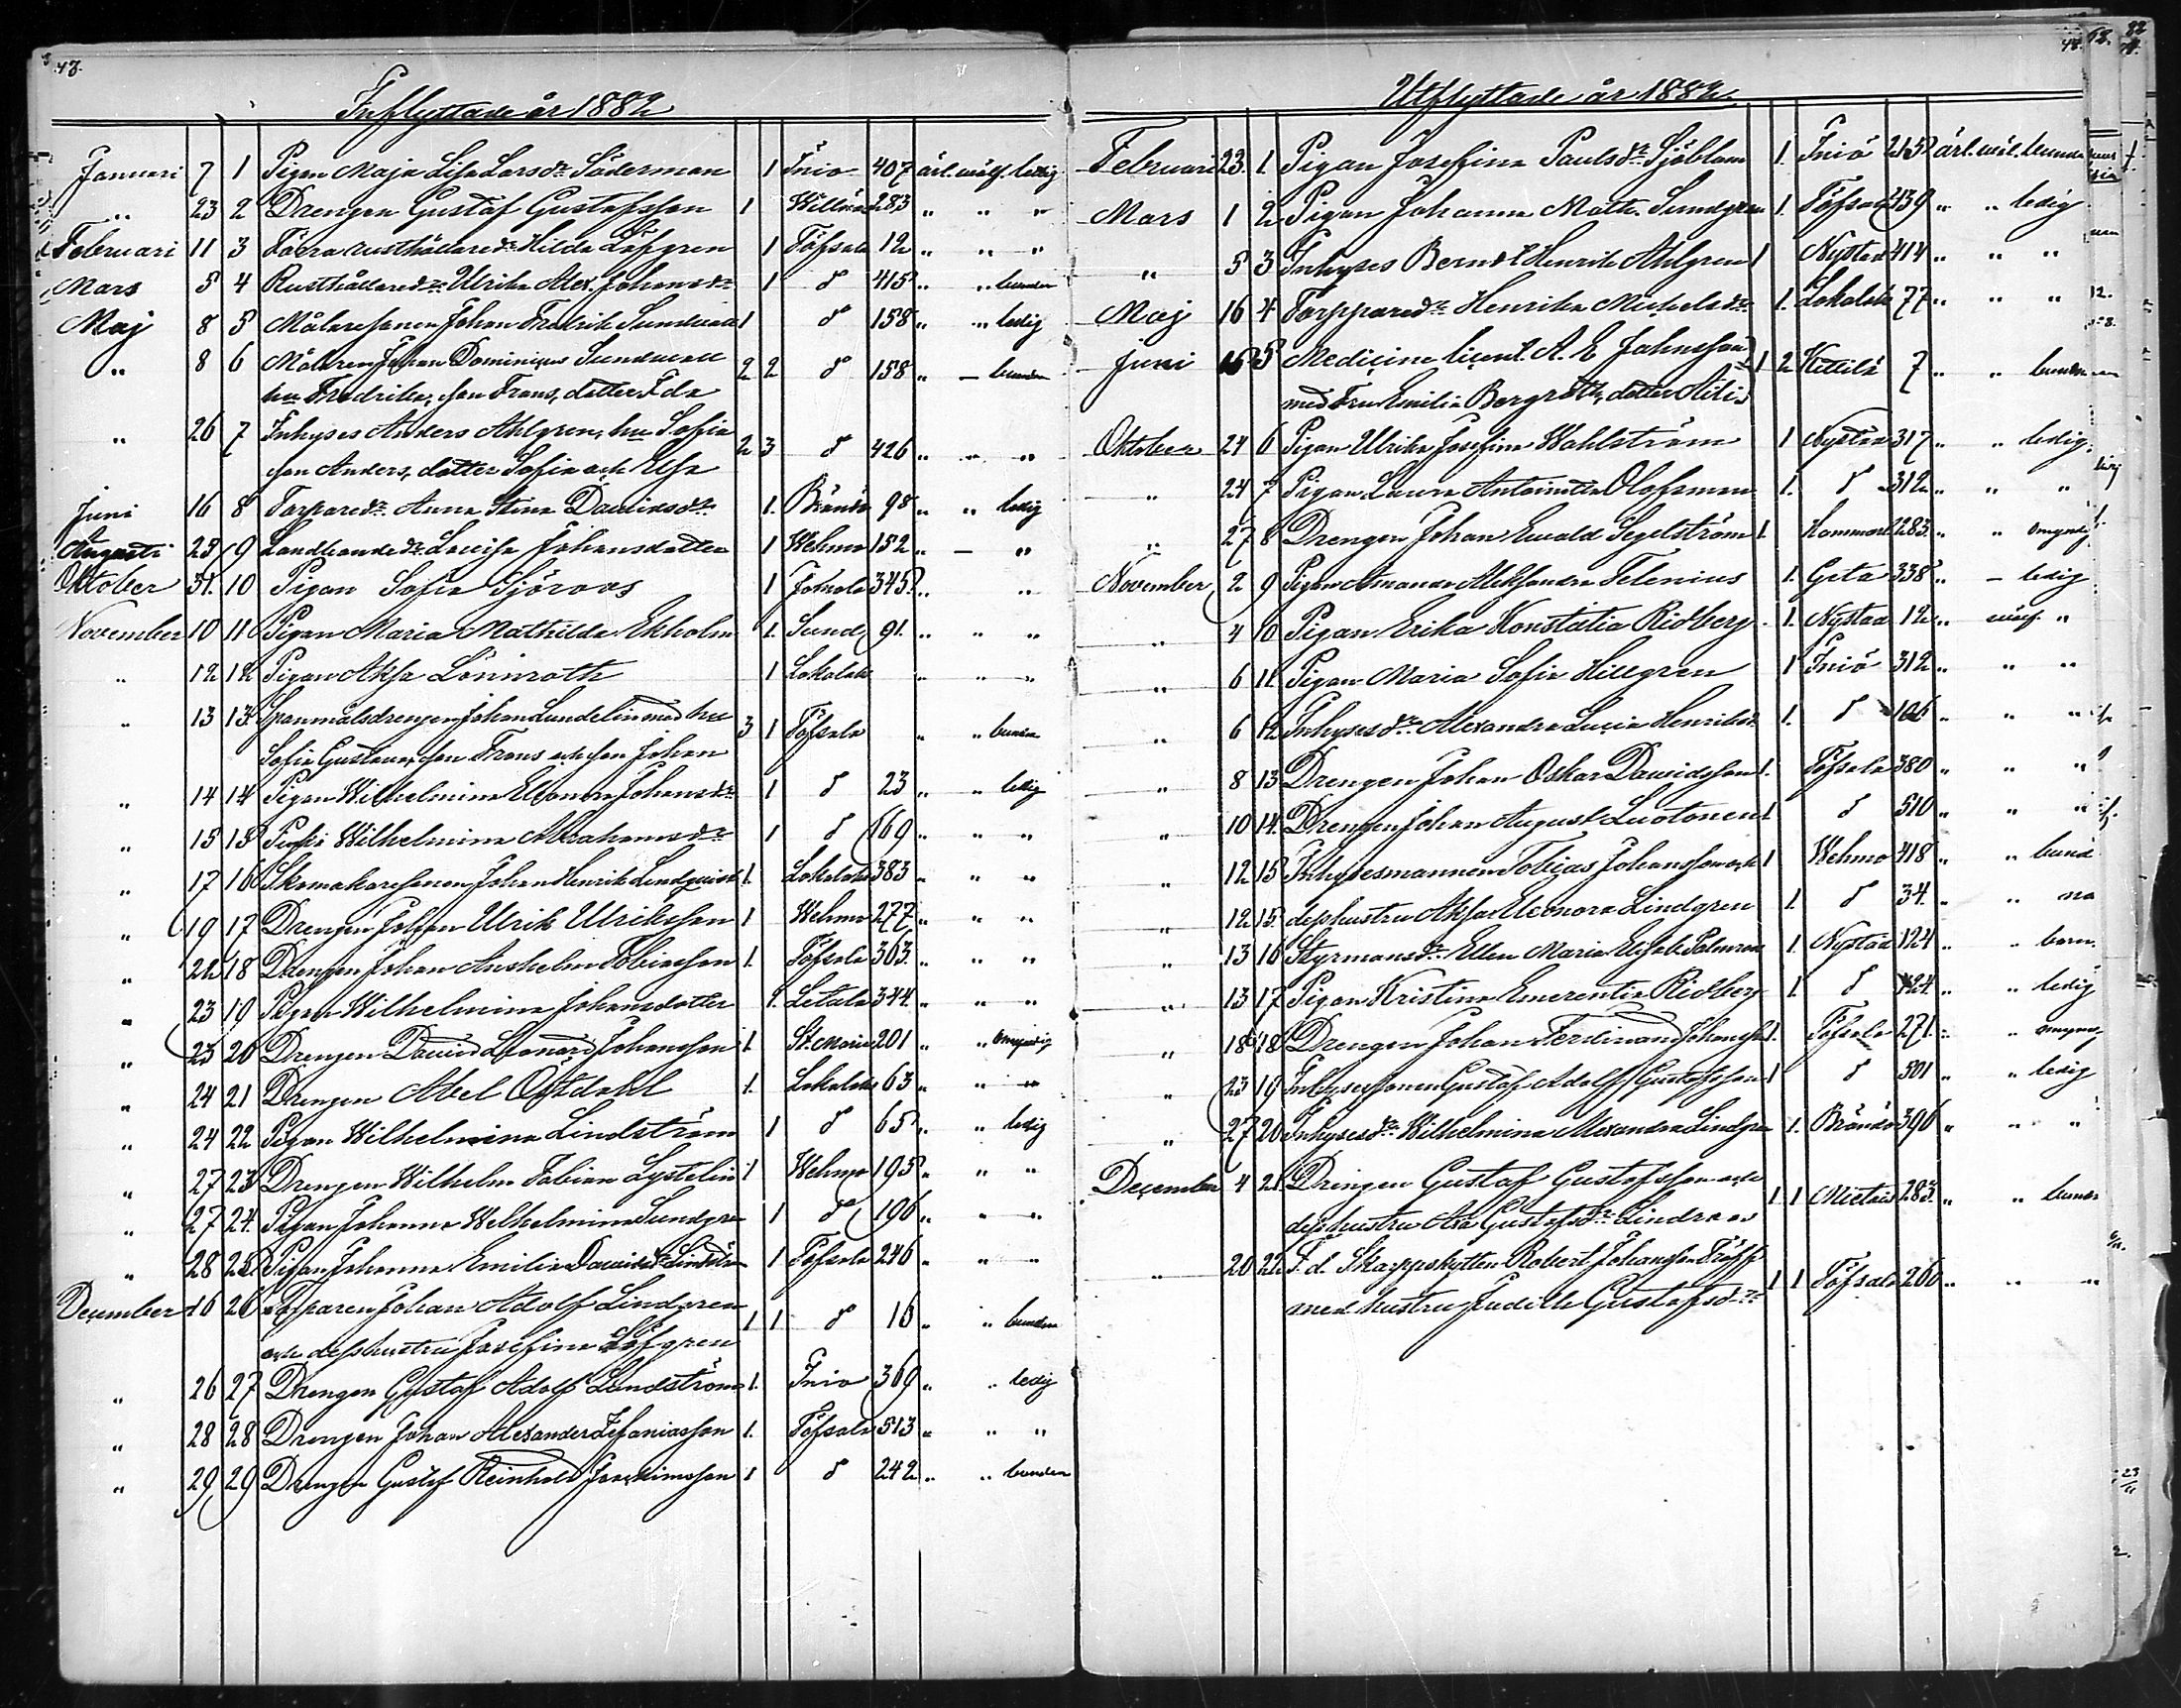 47.
Inflyttade år 1882
Januari 7 1 Pigan Maja Lisa Larsdr Söderman 1 Iniö 407 ärl. wälf. ledig
" 23 2 Drengen Gustaf Gustafsson 1 283 " " "
Februari 11 3 Förra rusthållaredr Hilda Löfgren 1 Töfsala 12 " " "
Mars 5 4 Rusthållaredr Ulrika Alex. Johansdr 1 d 415 " " bunden
Maj 8 5 Målaresonen Johan Fredrik Sundwall 1 d 158 " " ledig
" 8 6 Målaren Johan Dominicus Sundwall 2 2 d 158 " — bunden
hu Fredrika, son Frans, dotter Ida
" 26 7 Inhyses Anders Ahlgren, hu Sofia 2 3 d 426 " — "
son Anders, dotter Sofia och Elsa
Juni 16 8 Torparedr Anna Stina Davidsdr 1. Brändö 98 " " ledig
Augusti 23 9 Landbondedr Lovisa Johansdotter 1 Wehmo 152 " — "
Oktober 31. 10 Pigan Sofia Sjöroos 1 Jomala 345 " "
November 10 11 Pigan Maria Mathilda Ekholm 1. Sund 91. " " "
" 12 12 Pigan Aksa Lönnroth 1 Lokalaks " " "
" 13 13 Spanmålsdrengen Johan Lundelin med hu 3 1 Töfsala " " bunden
Sofia Gustava, son Frans och son Johan
" 14 14 Pigan Wilhelmina Eleonora Johansdr 1 d 23 " " ledig
" 15 15 Wilhelmina Abrahamsdr 1 d 169 " " "
" 17 16 Skomakaresonen Johan Henrik Lindqvist 1. Lokalaks 383 " " "
" 19 17 Drengen Johan Ulrik Ulriksson 1 Wehmo 277 " " "
" 22 18 Drengen Johan Anshelm Tobiasson 1. Töfsala 363. " " "
" 23 19 Pigan Wilhelmina Johansdotter 1. Letala 344 " " "
" 23 20 Drengen David Leonard Johansson 1. St. Maria 201 " " omyndig
" 24 21 Drengen Abel Östdahl 1. Lokalaks 63 " " "
" 24 22 Pigan Wilhelmina Lindström 1 d 65 " " ledig
" 27 23 Drengen Wilhelm Fabian Lystelin 1 Wehmo 195 " " "
" 27 24 Pigan Johanna Wilhelmina Sundgren 1 d 196 " " "
" 28 25 Pigan Johanna Emilia Davidsdr Lindström 1 Töfsala 246 " " "
December 16 26 Torparen Johan Adolf Lindgren 1 1 d 16 " " bunden
och dess hustru Josefina Löfgren
" 26 27 Drengen Gustaf Adolf Lundström 1. Iniö 369 " " ledig
" 28 28 Drengen Johan Alexander Zefaniasson 1. Töfsala 513 " " "
" 29 29 Drengen Gustaf Reinhold Joachimsson 1 d 242 " " bunden
48.
Utflyttade år 1882.
Februari 23. 1. Pigan Josefina Paulsdr Sjöblom 1. Iniö 215 ärl. wäl. bunden
Mars 1 2 Pigan Johanna Math. Sundgren 1. Töfsala 439 " " ledig
" 5 3 Inhyses Berndt Henrik Ahlgren 1 Nystad 414 " " "
Maj 16 4 Torparedr Henrika Michelsdr 1. Lokalaks 77 " " "
Juni 15 5 Medicine licent. A. E Johnsson 1 2 Kittilä 7 " " bunden
med Fru Emilia Bergroth, dotter Aili
Oktober 24 6 Pigan Ulrika Josefina Wahlström 1 Nystad 317 " " ledig
" 24 7 Pigan Laura Antoinetta Olofsman 1. d 312 " " "
" 27 8 Drengen Johan Ewald Segelström 1. Hammarl 283 " " omyndig
November 2 9 Pigan Amanda Aleksandra Telenius 1. Geta 338 " — ledig
" 4 10 Pigan Erika Konstatia Ridberg 1. Nystad 12 " wälf. "
" 6 11 Pigan Maria Sofia Hillgren 1 Iniö 312 " " "
" 6 12 Inhysesdr Alexandra Lucia Henriksdr 1. d 106 " " "
" 8 13 Drengen Johan Oskar Davidsson 1. Töfsala 380 " " "
" 10 14. Drengen Johan August Luotonen 1. d 510 " " "
" 12 15 Inhysesmannen Tobias Johansson och 1 Wehmo 418 " " bund
" 12 15. dess hustru Aksa Eleonora Lindgren 1. d 34. " " na
" 13 16 Styrmansdr Ellen Maria Elisab. Palmroos 1. Nystad 124 " " barn.
" 13 17 Pigan Kristina Emerentia Ridberg 1. d 124 " " ledig
" 18 18 Drengen Johan Ferdinand Johansson 1. Töfsala 271. " " omynd.
" 23 19 Inhysessonen Gustaf Adolf Gustafsson 1 d 501 " " ledig
" 27 20 Inhysesdr Wilhelmina Alexandra Lindgren 1. Brändö 396 " " "
December 4 21 Drengen Gustaf Gustafsson och 1 1 Mietois 283 " " bunden
dess hustru Gustafsdr Lindroos
" 20 22 F. d. Skarpskytten Robert Johansson Träff 1 1 Töfsala 260 " " "
med hustru Judith Gustafsdr